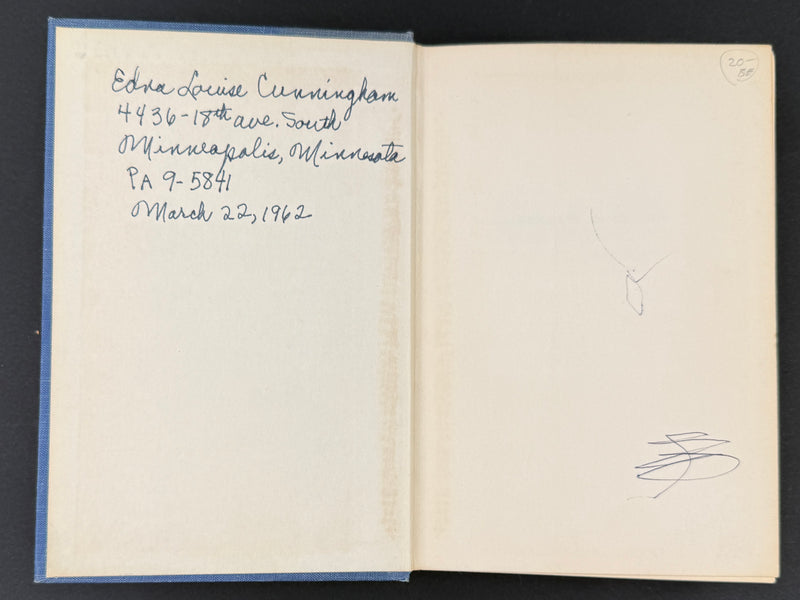 Edna Louise Cunningham
4436-18th ave. South
Minneapolis, Minnesota
PA 9-5841
March 22, 1962
20-